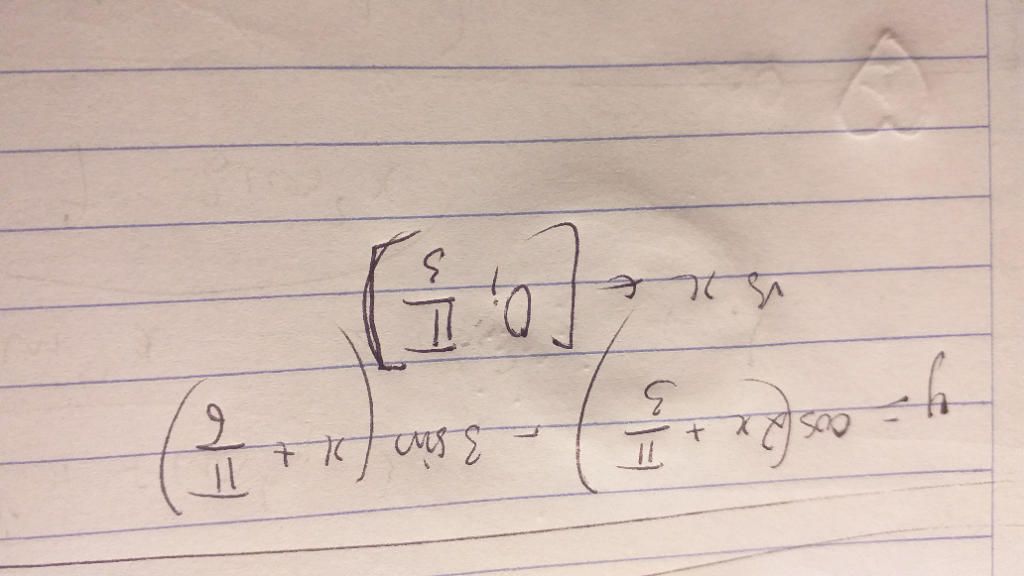 y = cos(2x + π/3) - 3 sin(x + π/6)
vs x ∈ [0; π/3]